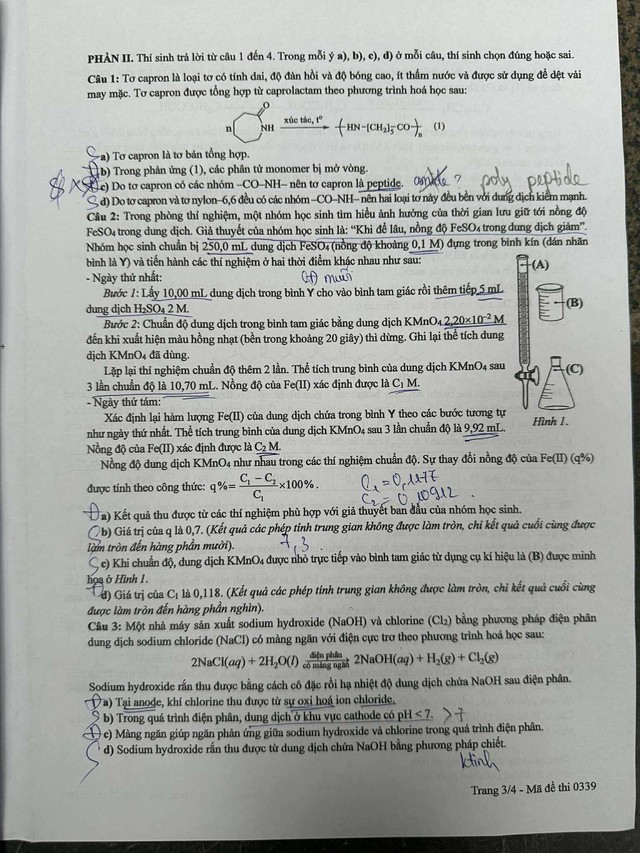 PHẦN II. Thí sinh trả lời từ câu 1 đến 4. Trong mỗi ý a), b), c), d) ở mỗi câu, thí sinh chọn đúng hoặc sai.
Câu 1: Tơ capron là loại tơ có tính dai, độ đàn hồi và độ bóng cao, ít thấm nước và được sử dụng để dệt vải
may mặc. Tơ capron được tổng hợp từ caprolactam theo phương trình hoá học sau:
O
n NH xúc tác, t° (HN–[CH₂]₅–CO)n (1)
S a) Tơ capron là tơ bán tổng hợp.
Đ b) Trong phản ứng (1), các phân tử monomer bị mở vòng.
c) Do tơ capron có các nhóm –CO–NH– nên tơ capron là peptide. amide? poly peptide
S d) Do tơ capron và tơ nylon–6,6 đều có các nhóm –CO–NH– nên hai loại tơ này đều bền với dung dịch kiềm mạnh.
Câu 2: Trong phòng thí nghiệm, một nhóm học sinh tìm hiểu ảnh hưởng của thời gian lưu giữ tới nồng độ
FeSO₄ trong dung dịch. Giả thuyết của nhóm học sinh là: “Khi để lâu, nồng độ FeSO₄ trong dung dịch giảm”.
Nhóm học sinh chuẩn bị 250,0 mL dung dịch FeSO₄ (nồng độ khoảng 0,1 M) đựng trong bình kín (dán nhãn
bình là Y) và tiến hành các thí nghiệm ở hai thời điểm khác nhau như sau:
- Ngày thứ nhất:
muối
Bước 1: Lấy 10,00 mL dung dịch trong bình Y cho vào bình tam giác rồi thêm tiếp 5 mL
dung dịch H₂SO₄ 2 M.
Bước 2: Chuẩn độ dung dịch trong bình tam giác bằng dung dịch KMnO₄ 2,20×10⁻² M
đến khi xuất hiện màu hồng nhạt (bền trong khoảng 20 giây) thì dừng. Ghi lại thể tích dung
dịch KMnO₄ đã dùng.
Lặp lại thí nghiệm chuẩn độ thêm 2 lần. Thể tích trung bình của dung dịch KMnO₄ sau
3 lần chuẩn độ là 10,70 mL. Nồng độ của Fe(II) xác định được là C₁ M.
- Ngày thứ tám:
Xác định lại hàm lượng Fe(II) của dung dịch chứa trong bình Y theo các bước tương tự
như ngày thứ nhất. Thể tích trung bình của dung dịch KMnO₄ sau 3 lần chuẩn độ là 9,92 mL.
Nồng độ của Fe(II) xác định được là C₂ M.
(A)
(B)
(C)
Hình 1.
Nồng độ dung dịch KMnO₄ như nhau trong các thí nghiệm chuẩn độ. Sự thay đổi nồng độ của Fe(II) (q%)
được tính theo công thức: q% = (C₁ – C₂)/C₁ ×100%.
C₁ = 0,1177
C₂ = 0,10912
Đ a) Kết quả thu được từ các thí nghiệm phù hợp với giả thuyết ban đầu của nhóm học sinh.
S b) Giá trị của q là 0,7. (Kết quả các phép tính trung gian không được làm tròn, chỉ kết quả cuối cùng được
làm tròn đến hàng phần mười). 7,3
S c) Khi chuẩn độ, dung dịch KMnO₄ được nhỏ trực tiếp vào bình tam giác từ dụng cụ kí hiệu là (B) được minh
hoạ ở Hình 1.
Đ d) Giá trị của C₁ là 0,118. (Kết quả các phép tính trung gian không được làm tròn, chỉ kết quả cuối cùng
được làm tròn đến hàng phần nghìn).
Câu 3: Một nhà máy sản xuất sodium hydroxide (NaOH) và chlorine (Cl₂) bằng phương pháp điện phân
dung dịch sodium chloride (NaCl) có màng ngăn với điện cực trơ theo phương trình hoá học sau:
2NaCl(aq) + 2H₂O(l) điện phân có màng ngăn 2NaOH(aq) + H₂(g) + Cl₂(g)
Sodium hydroxide rắn thu được bằng cách cô đặc rồi hạ nhiệt độ dung dịch chứa NaOH sau điện phân.
Đ a) Tại anode, khí chlorine thu được từ sự oxi hoá ion chloride.
S b) Trong quá trình điện phân, dung dịch ở khu vực cathode có pH < 7. >7
Đ c) Màng ngăn giúp ngăn phản ứng giữa sodium hydroxide và chlorine trong quá trình điện phân.
S d) Sodium hydroxide rắn thu được từ dung dịch chứa NaOH bằng phương pháp chiết.
ktinh
Trang 3/4 - Mã đề thi 0339